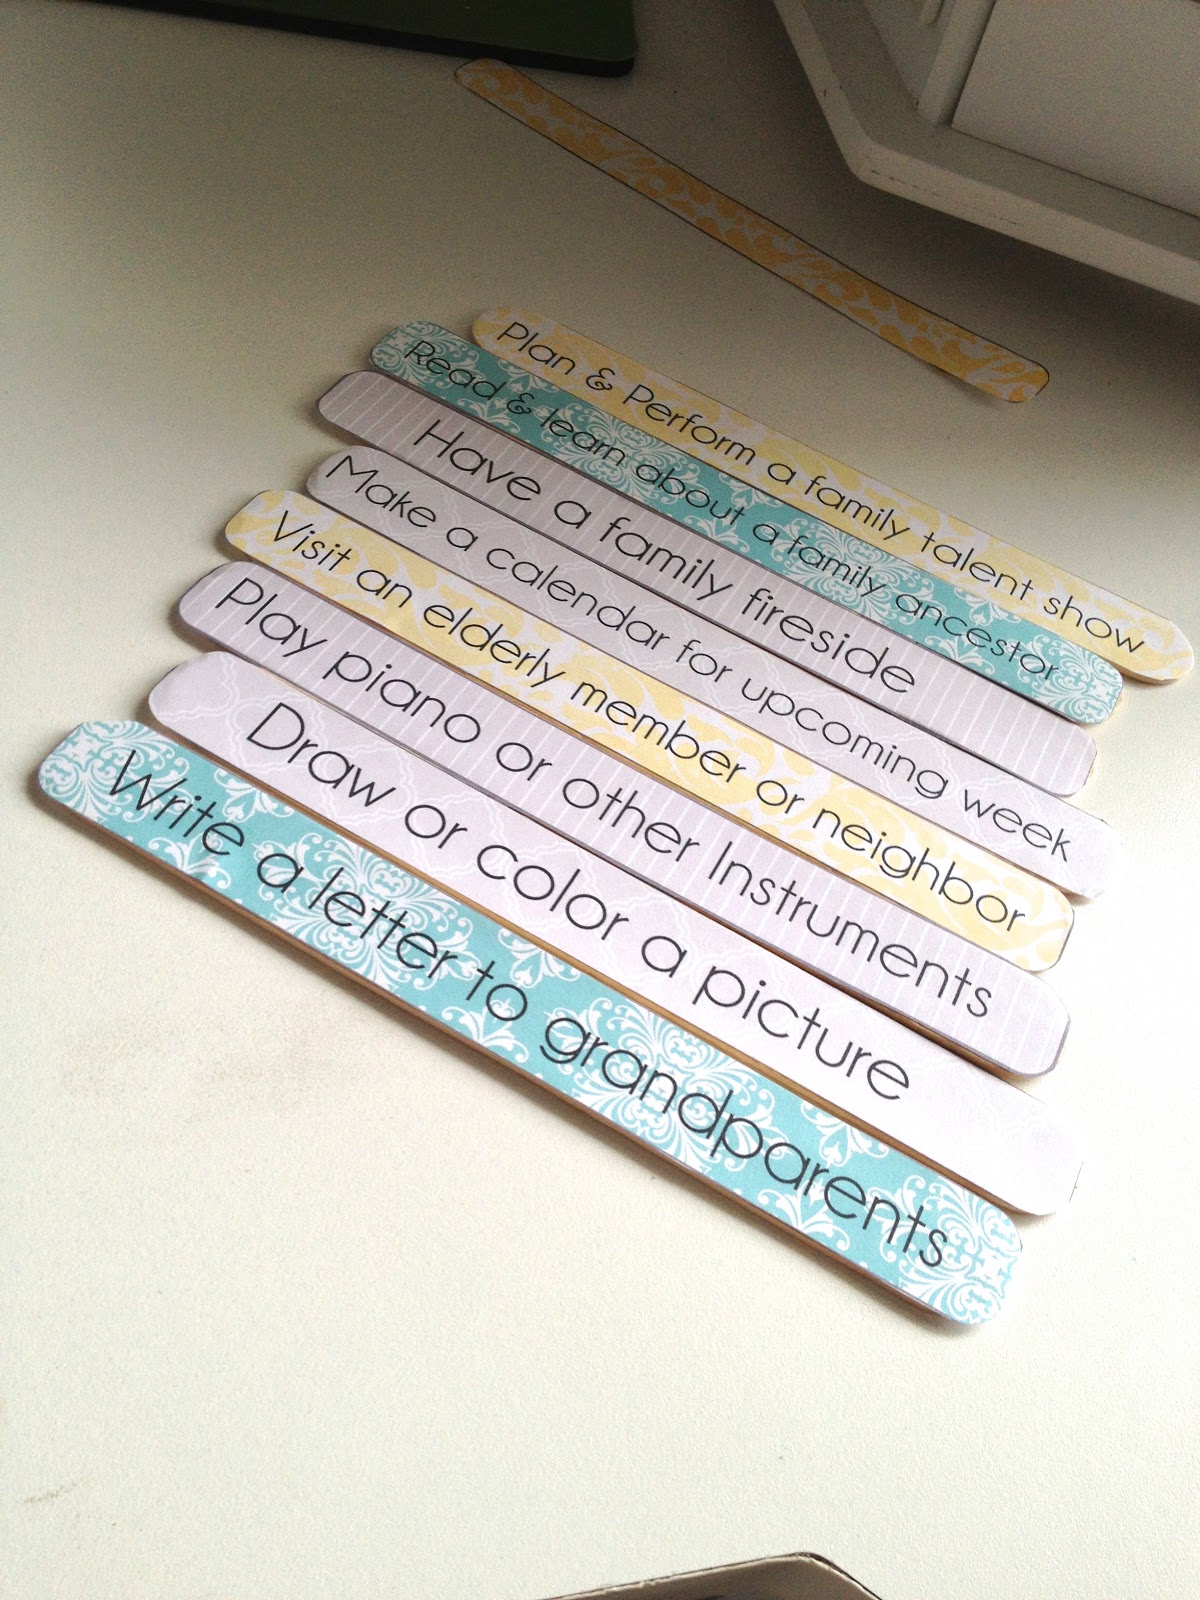 Plan & Perform a family talent show
Read & learn about a family ancestor
Have a family fireside
Make a calendar for upcoming week
Visit an elderly member or neighbor
Play piano or other Instruments
Draw or color a picture
Write a letter to grandparents